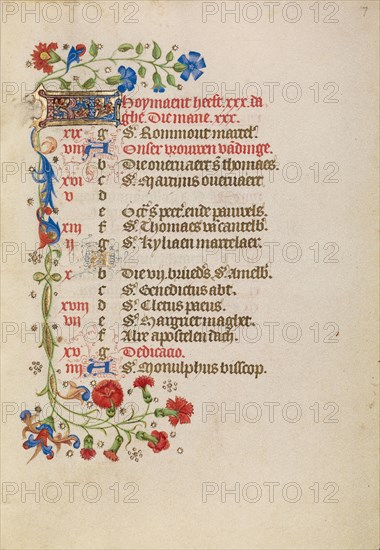 Hoymaent heeft .xxx. da
ghe. Die mane .xxx.
xix g S. Rommout martel.
viii A Onser vrouwen vandinge.
b Die ouervaert s. thomaes.
xvi c S. Martinus overvaert
v d
e Octa. s peet. ende pauwels.
xiii f S. Thomaes va cantelb.
ii g S. Kyliaen martelaer.
A
x b Die vii. brueders. S. Amelb.
c S. Benedictus abt.
xviii d S. Cletus paeus.
vii e S. Margriet maghet.
f Alre apostelen dach.
xv g Dedicatio.
iiii A S. Monulphus bisscop.
PHOTO 12